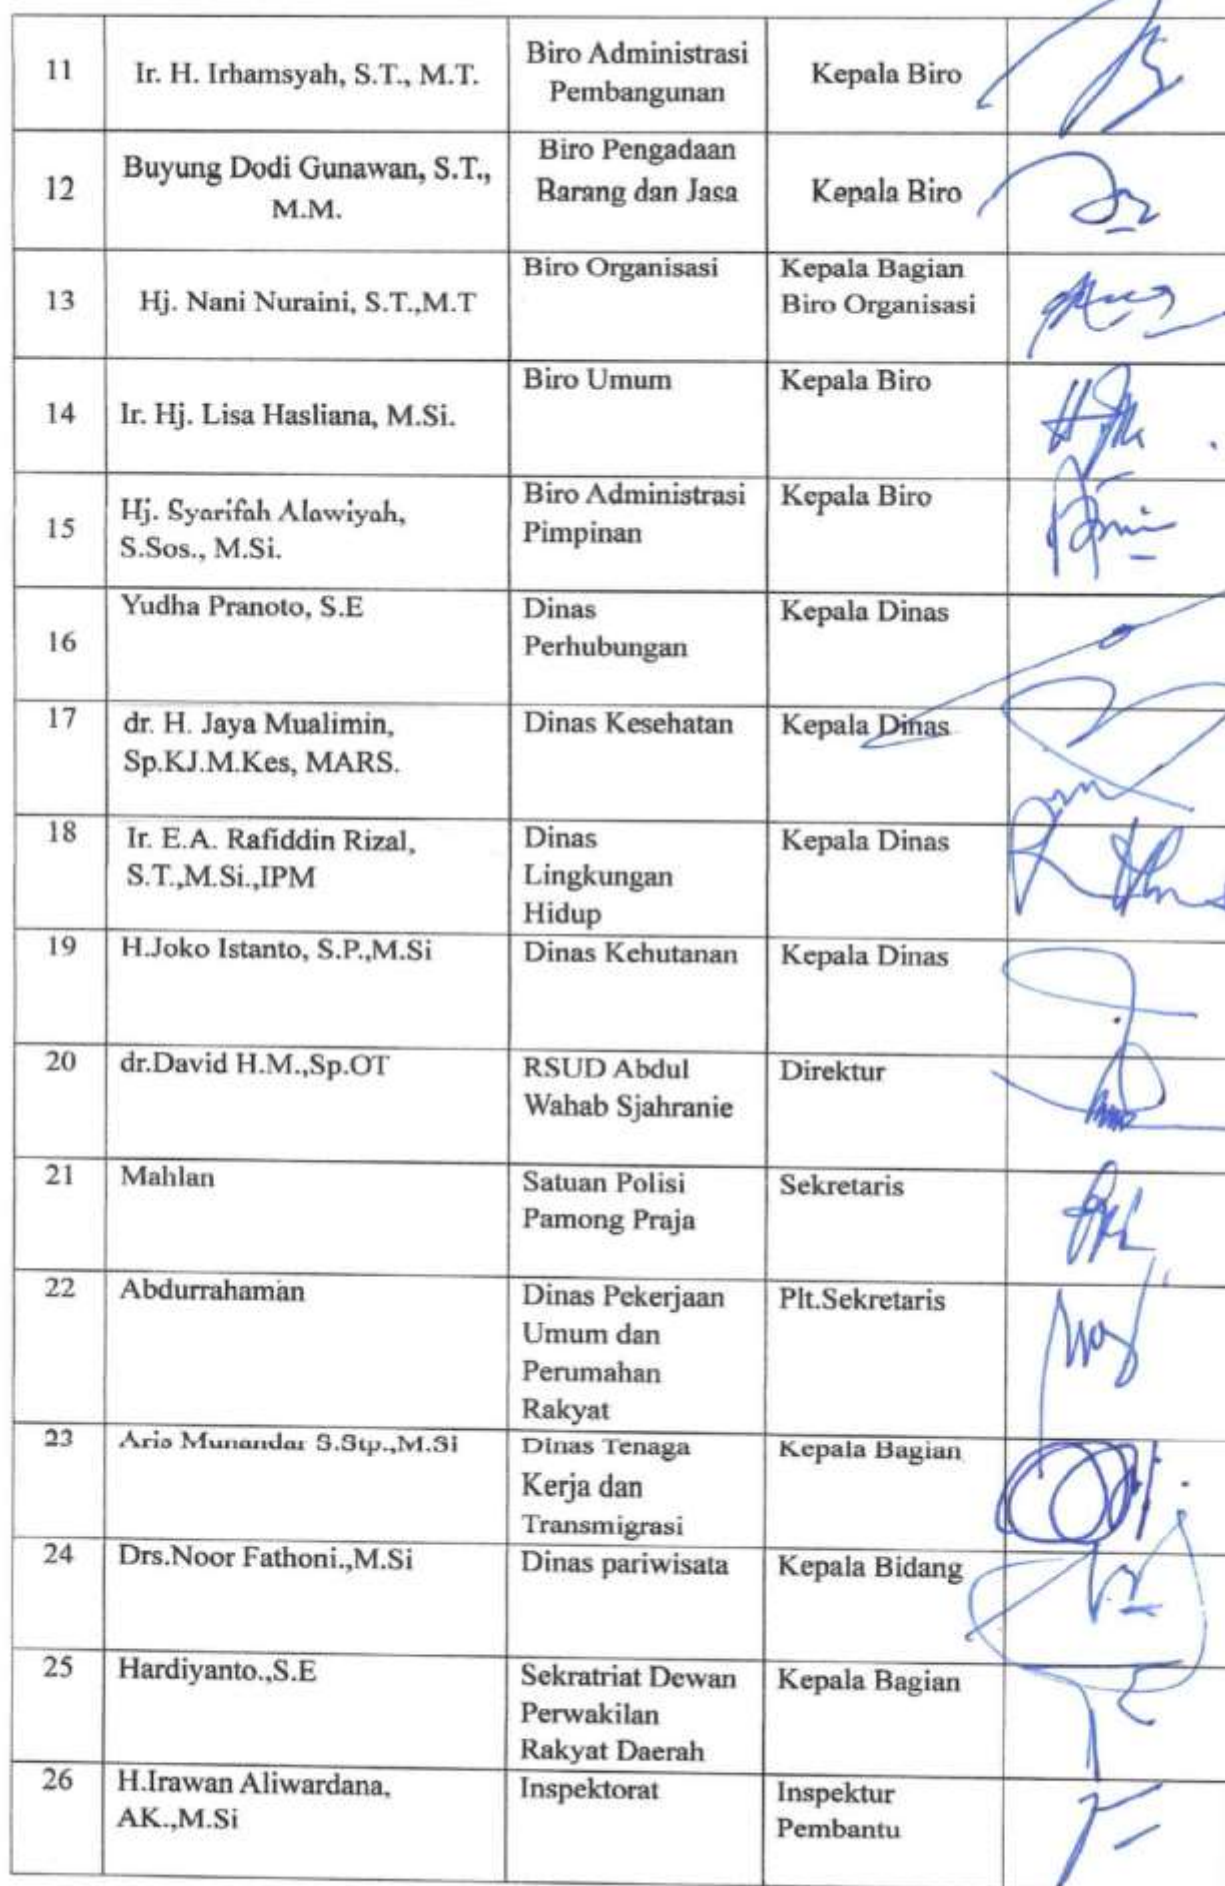 11 Ir. H. Irhamsyah, S.T., M.T. Biro Administrasi Pembangunan Kepala Biro
12 Buyung Dodi Gunawan, S.T., M.M. Biro Pengadaan Barang dan Jasa Kepala Biro
13 Hj. Nani Nuraini, S.T.,M.T Biro Organisasi Kepala Bagian Biro Organisasi
14 Ir. Hj. Lisa Hasliana, M.Si. Biro Umum Kepala Biro
15 Hj. Syarifah Alawiyah, S.Sos., M.Si. Biro Administrasi Pimpinan Kepala Biro
16 Yudha Pranoto, S.E Dinas Perhubungan Kepala Dinas
17 dr. H. Jaya Mualimin, Sp.KJ.M.Kes, MARS. Dinas Kesehatan Kepala Dinas
18 Ir. E.A. Rafiddin Rizal, S.T.,M.Si.,IPM Dinas Lingkungan Hidup Kepala Dinas
19 H.Joko Istanto, S.P.,M.Si Dinas Kehutanan Kepala Dinas
20 dr.David H.M.,Sp.OT RSUD Abdul Wahab Sjahranie Direktur
21 Mahlan Satuan Polisi Pamong Praja Sekretaris
22 Abdurrahaman Dinas Pekerjaan Umum dan Perumahan Rakyat Plt.Sekretaris
23 Aris Munandar S.Stp.,M.Si Dinas Tenaga Kerja dan Transmigrasi Kepala Bagian
24 Drs.Noor Fathoni.,M.Si Dinas pariwisata Kepala Bidang
25 Hardiyanto.,S.E Sekratriat Dewan Perwakilan Rakyat Daerah Kepala Bagian
26 H.Irawan Aliwardana, AK.,M.Si Inspektorat Inspektur Pembantu